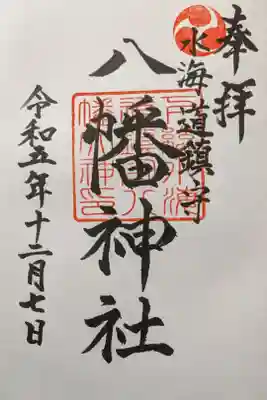 奉拝
水海道鎮守
八幡神社
令和五年十二月七日